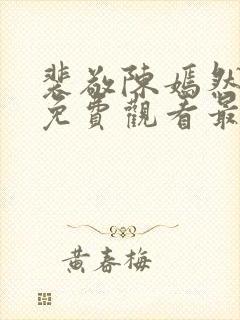 裴敬陳嫣然
免費觀看最
黃春梅